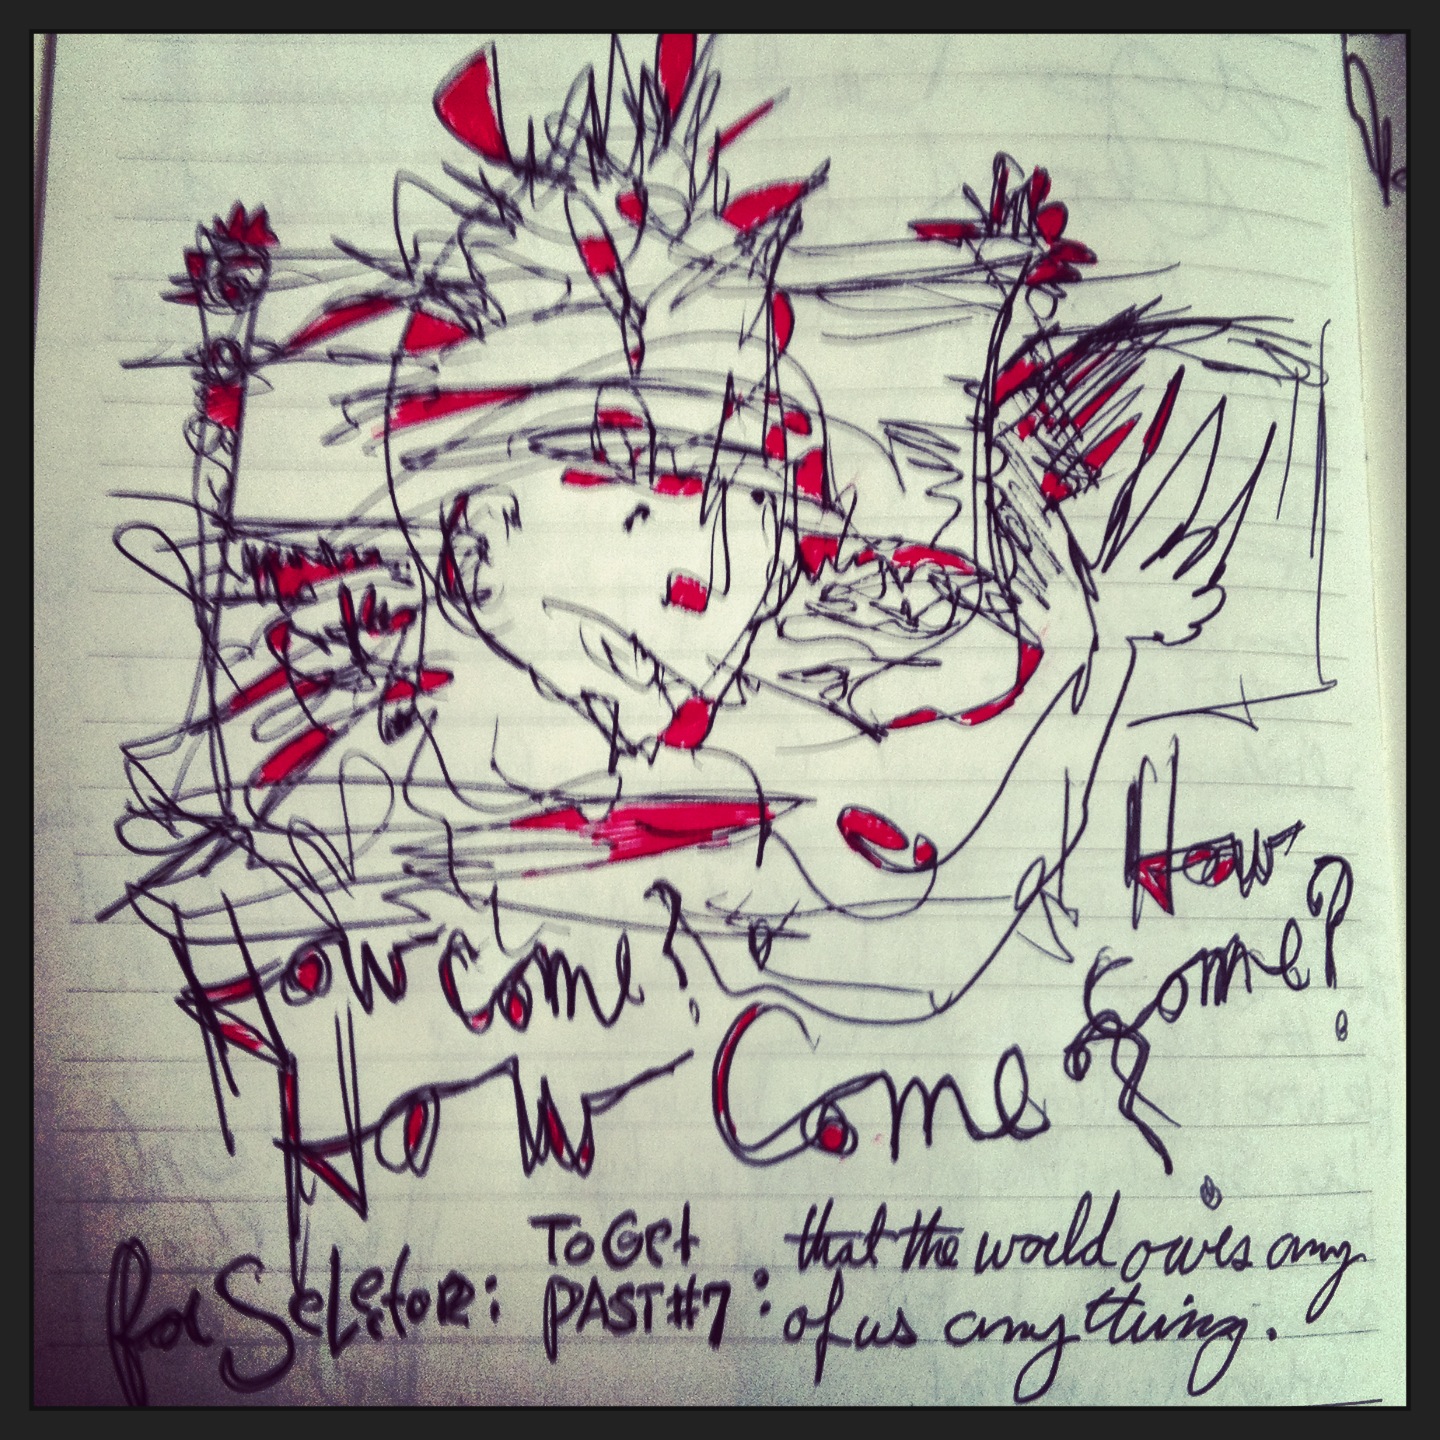 How
How come? come?
How Come?
for Seletor: TO GET PAST #7: that the world owes any
of us anything.